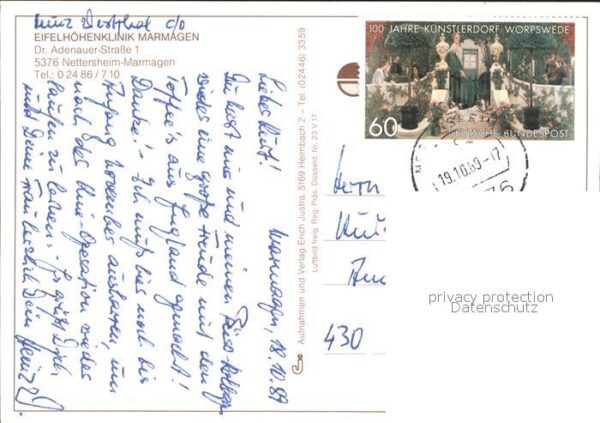 c/o
EIFELHÖHENKLINIK MARMAGEN
Dr. Adenauer-Straße 1
5376 Nettersheim-Marmagen
Tel.: 0 24 86 / 7 10
Marmagen, 18.10.89
Du hast mir und meinen
wieder eine große Freude mit den
Toffee's aus England gemacht!
Danke! - Ich muß hier noch bis
Anfang November ausharren, um
nach der Operation wieder
laufen zu lernen. - Es grüßt Dich
und Deine Frau herzlich Dein Heinz
Aufnahmen und Verlag Erich Justra, 5169 Heimbach 2 – Tel. (02446) 3359
Luftbild freig. Reg. Präs. Düsseld. Nr. 23 V 17
100 JAHRE KÜNSTLERDORF WORPSWEDE
60
DEUTSCHE BUNDESPOST
19.10.89-17
Herrn
430
privacy protection
Datenschutz